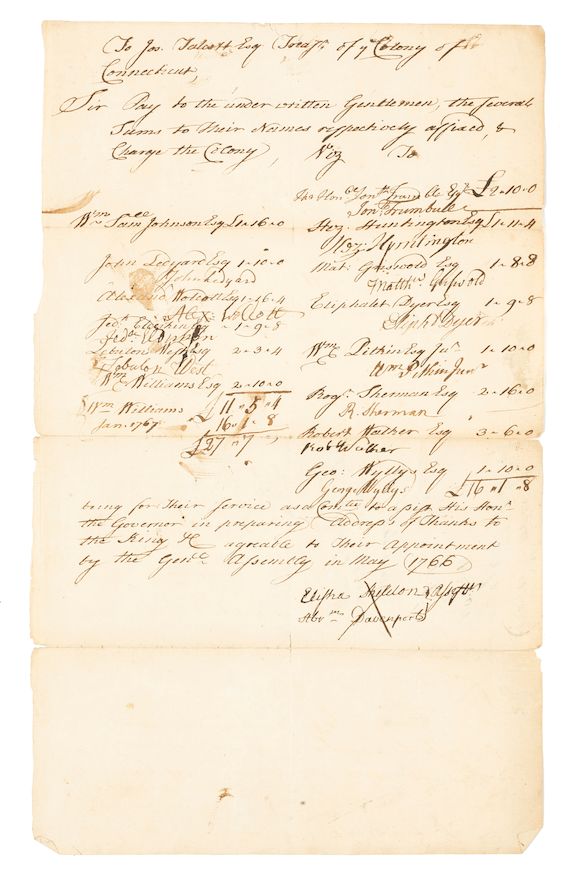 To Jos. Talcott Esq Treasr. of ye Colony of
Connecticut,
Sir Pay to the under written Gentlemen, the Several
Sums to their Names respectively affixed, &
Charge the Colony, Viz To
The Honble Jonth Trumble Esqr £2-10-0
Jonth Trumbull
Wm Saml Johnson Esq £1-16-0
Hez. Huntington Esq £1-11-4
Hez. Huntington
John Ledyard Esq 1-10-0
John Ledyard
Mat: Griswold Esq 1-8-8
Matthw Griswold
Alexandr Wolcott Esq 1-16-4
Alex: Wolcott
Eliphalet Dyer Esq 1-9-8
Elipht Dyer
Jedh 1-9-8
Jedh
Zebulon West Esq 2-3-4
Zebulon West
Wm Pitkin Esq Junr 1-10-0
Wm Pitkin Junr
Wm Williams Esq 2-10-0
Wm Williams £11-5-4
Jan. 1767 16-1-8
£27-7
Rogr Sherman Esq 2-16-0
R. Sherman
Robert Walker Esq 3-6-0
Robt Walker
Geo: Wyllys Esq 1-10-0
George Wyllys £16-1-8
being for their Service as a Comtee to assist His Honr
the Governor in preparing Address of Thanks to
the King &c agreable to their Appointment
by the Genll Assembly in May (1766)
Elisha Sheldon
Abrm Davenport